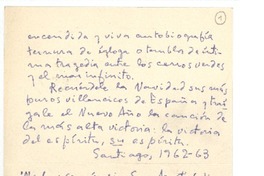 1
encendida y viva autobiografía
ternura de égloga o temblor de ínti
ma tragedia entre los cerros verdes
y el mar infinito.
Recuérdele la Navidad sus más
puros villancicos de España y trái
gale el Nuevo Año la canción de
la más alta victoria: la victoria
del espíritu, su espíritu.
Santiago, 1962-63